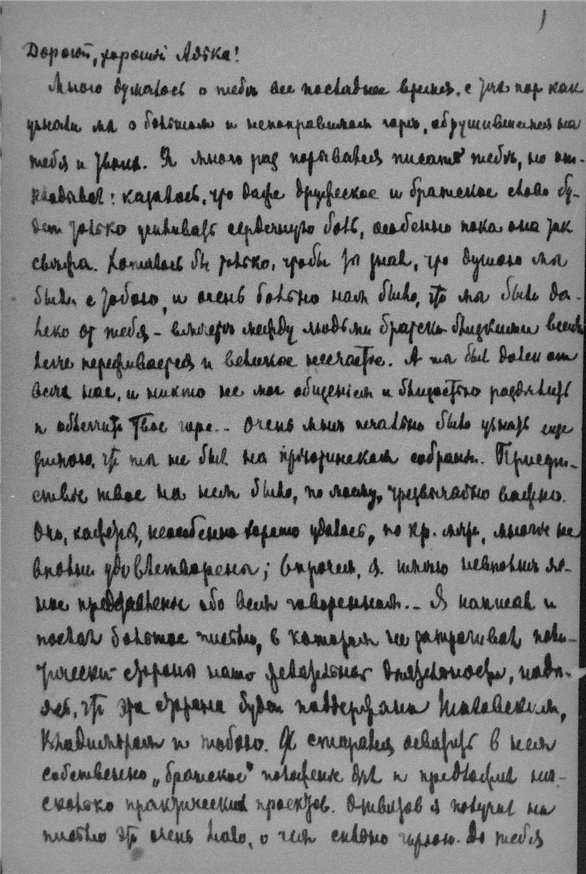 Дорогой, хороший Адька!
Много думалось о тебѣ все последнее время, с тѣх пор как
узнали мы о большом и непоправимом горе, обрушившемся на
тебя и твоих. Я много раз порывался писать тебѣ, но от-
кладывал: казалось, что даже дружеское и братское слово бу-
дет только усиливать сердечную боль, особенно пока она так
свежа. Хотелось бы только, чтобы ты знал, что душою мы
были с тобою, и очень больно нам было, что мы были да-
леко от тебя – вместе между людьми братски-близкими всего
легче переживается и великое несчастье. А ты был далек от
всех нас, и никто не мог общением и близостью разделить
и облегчить твое горе... Очень мнѣ печально было узнать еще
зимою, что ты не был на приютинском собрании. Присут-
ствие твое на нем было, по моему, чрезвычайно важно.
Оно, кажется, не особенно хорошо удалось, по кр. мѣрѣ, многие не
вполне удовлетворены; впрочем, я имею невполнѣ яс-
ное представление обо всем говоренном... Я написал и
послал большое письмо, в котором не затрагивал поли-
тической стороны нашей деятельности, надѣ-
ясь, что эта сторона будет поддержана Шаховским,
Владимиром и тобою. Я старался осветить в нем
собственно „братское" положение дел и предложил нѣ-
сколько практических проектов. Отвѣтов я получил на
письмо это очень мало, о чем сильно горюю. До тебя